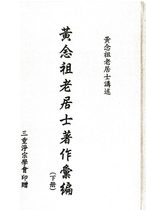 黃念祖老居士講述
黃念祖老居士著作彙編
(下冊)
三重淨宗學會 印贈